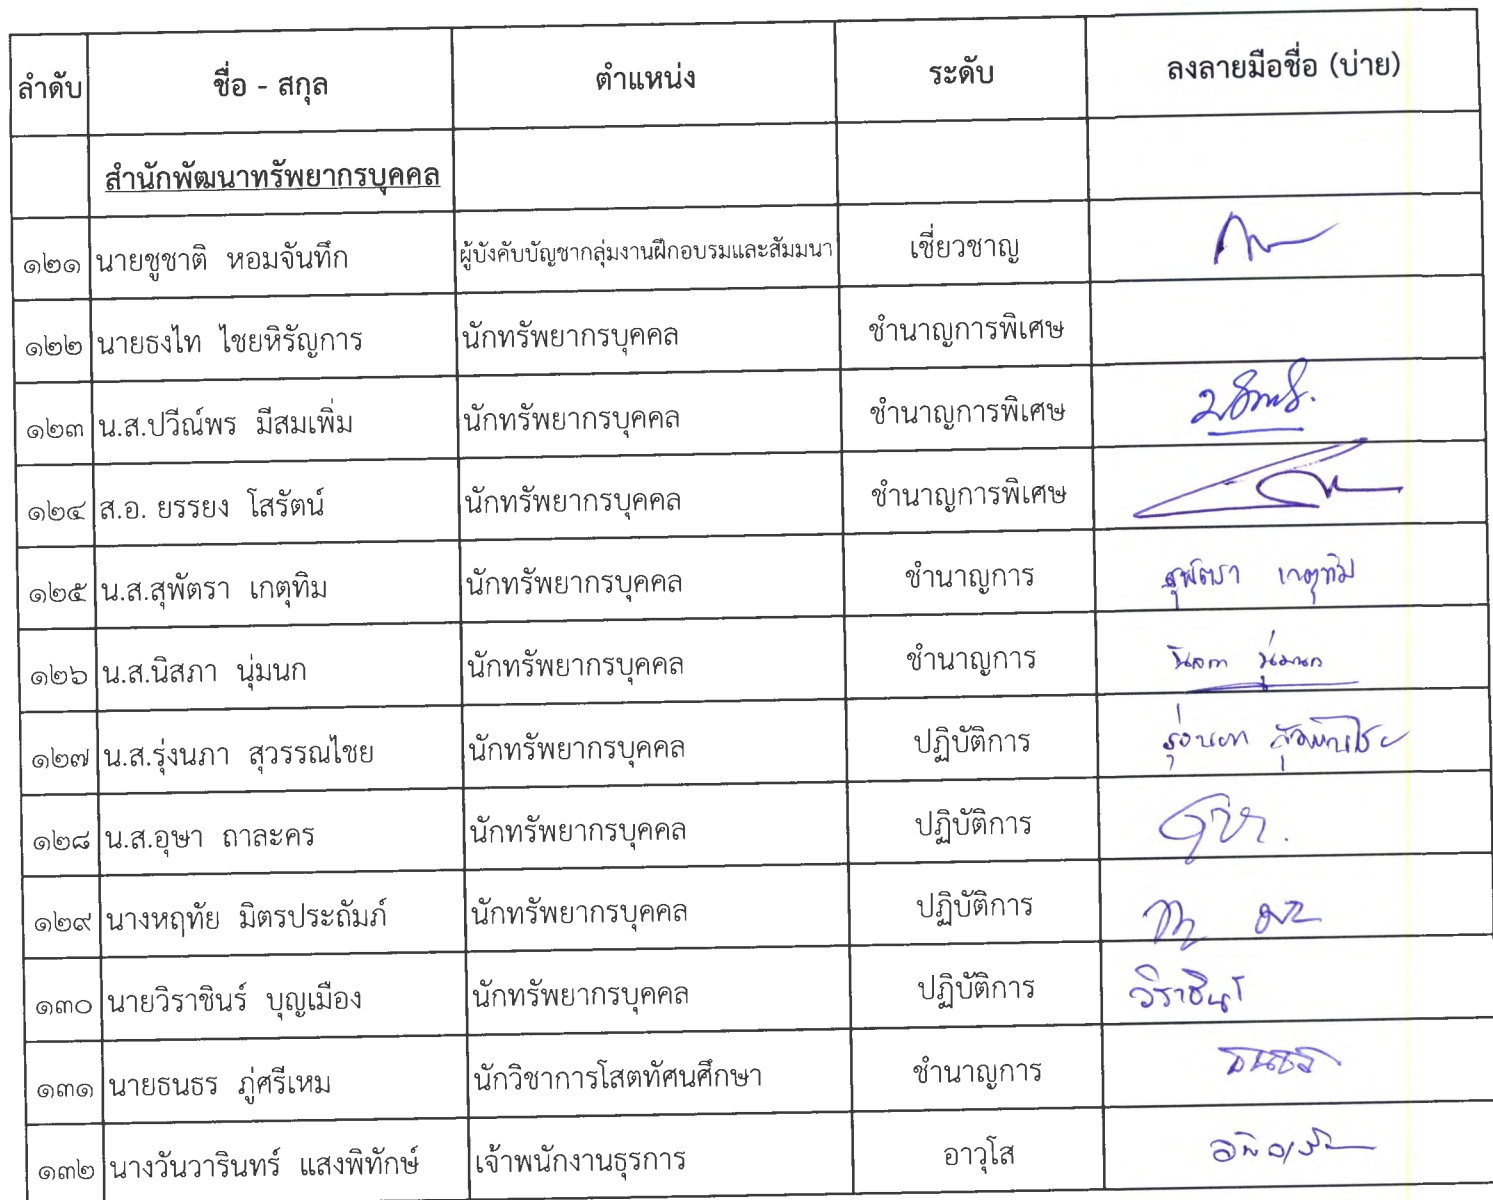 ลำดับ ชื่อ - สกุล ตำแหน่ง ระดับ ลงลายมือชื่อ (บ่าย)
สำนักพัฒนาทรัพยากรบุคคล
๑๒๑ นายชูชาติ หอมจันทึก ผู้บังคับบัญชากลุ่มงานฝึกอบรมและสัมมนา เชี่ยวชาญ
๑๒๒ นายธงไท ไชยหิรัญการ นักทรัพยากรบุคคล ชำนาญการพิเศษ
๑๒๓ น.ส.ปวีณ์พร มีสมเพิ่ม นักทรัพยากรบุคคล ชำนาญการพิเศษ
๑๒๔ ส.อ. ยรรยง โสรัตน์ นักทรัพยากรบุคคล ชำนาญการพิเศษ
๑๒๕ น.ส.สุพัตรา เกตุทิม นักทรัพยากรบุคคล ชำนาญการ สุพัตรา เกตุทิม
๑๒๖ น.ส.นิสภา นุ่มนก นักทรัพยากรบุคคล ชำนาญการ นิสภา นุ่มนก
๑๒๗ น.ส.รุ่งนภา สุวรรณไชย นักทรัพยากรบุคคล ปฏิบัติการ รุ่งนภา สุวรรณไชย
๑๒๘ น.ส.อุษา ถาละคร นักทรัพยากรบุคคล ปฏิบัติการ
๑๒๙ นางหฤทัย มิตรประถัมภ์ นักทรัพยากรบุคคล ปฏิบัติการ
๑๓๐ นายวิราชินร์ บุญเมือง นักทรัพยากรบุคคล ปฏิบัติการ วิราชินร์
๑๓๑ นายธนธร ภู่ศรีเหม นักวิชาการโสตทัศนศึกษา ชำนาญการ ธนธร
๑๓๒ นางวันวารินทร์ แสงพิทักษ์ เจ้าพนักงานธุรการ อาวุโส